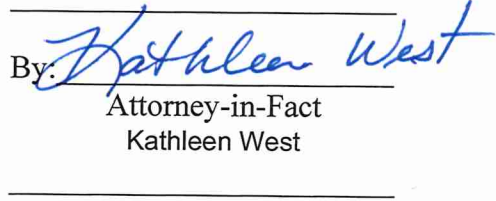 By: Kathleen West
Attorney-in-Fact
Kathleen West